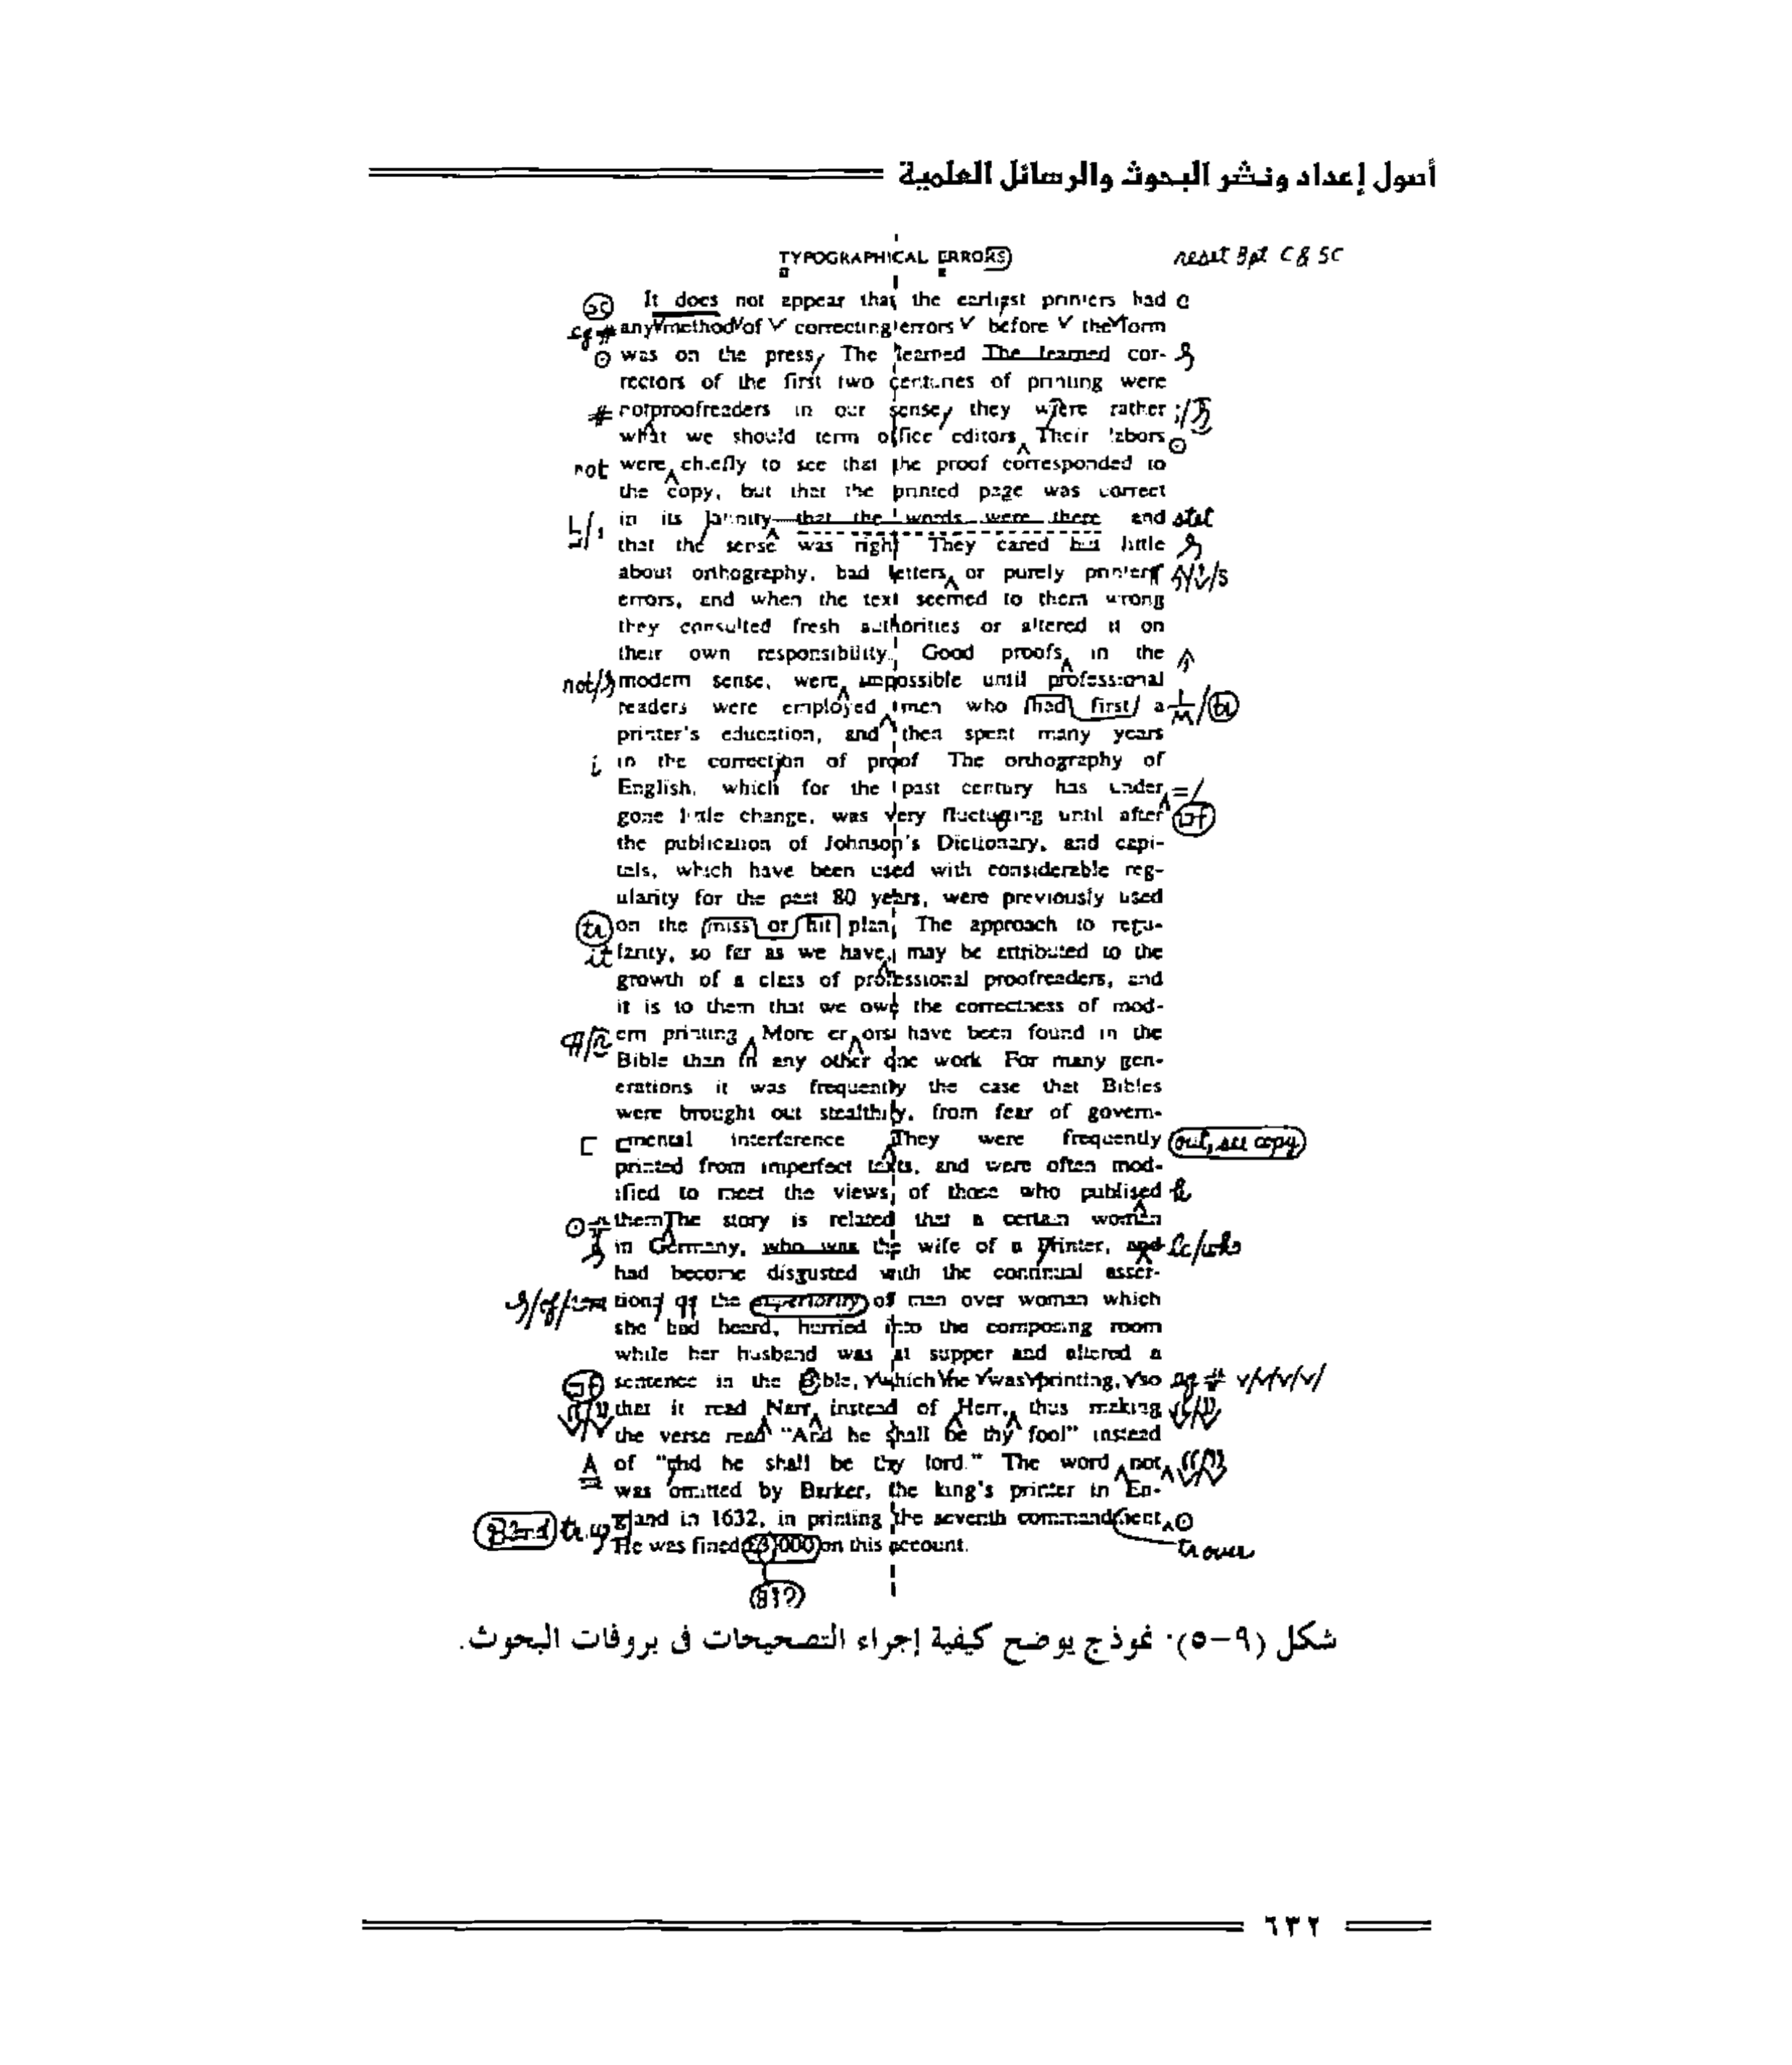 أصول إعداد ونشر البحوث والرسائل العلمية
TYPOGRAPHICAL ERRORS reset 8pt C & SC
sc It does not appear that the earliest printers had e
eq # any method of correcting errors before the form
⊙ was on the press The learned The learned cor-
rectors of the first two centuries of printing were
# notproofreaders in our sense, they were rather ;/
what we should term office editors Their labors ⊙
not were chiefly to see that the proof corresponded to
the copy, but that the printed page was correct
in its latinity—that the words were there and stet
that the sense was right They cared but little
about orthography, bad letters or purely printers
errors, and when the text seemed to them wrong
they consulted fresh authorities or altered it on
their own responsibility. Good proofs in the
not/ modern sense, were impossible until professional
readers were employed men who had first a 1/M/tr
printer's education, and then spent many years
i in the correction of proof The orthography of
English, which for the past century has under =/
gone little change, was very fluctuating until after wf
the publication of Johnson's Dictionary, and capi-
tals, which have been used with considerable reg-
ularity for the past 80 years, were previously used
tr on the miss or hit plan The approach to regu-
it larity, so far as we have, may be attributed to the
growth of a class of professional proofreaders, and
it is to them that we owe the correctness of mod-
¶/r ern printing More er ors have been found in the
Bible than in any other one work For many gen-
erations it was frequently the case that Bibles
were brought out stealthily, from fear of govern-
[ mental interference They were frequently out, see copy
printed from imperfect texts, and were often mod-
ified to meet the views of those who publised h
⊙ themThe story is related that a certain woman
in Germany, who was the wife of a Printer, and lc/who
had become disgusted with the continual asser-
tions of the superiority of man over woman which
she had heard, hurried into the composing room
while her husband was at supper and altered a
sentence in the Bible, which he was printing, so eq #
that it read Narr instead of Herr, thus making
the verse read "And he shall be thy fool" instead
A of "and he shall be thy lord." The word not
was omitted by Barker, the king's printer in En-
gland in 1632, in printing the seventh commandment ⊙
He was fined £3,000 on this account. tr over
شكل (٩-٥): نموذج يوضح كيفية إجراء التصحيحات فى بروفات البحوث.
٦٣٢